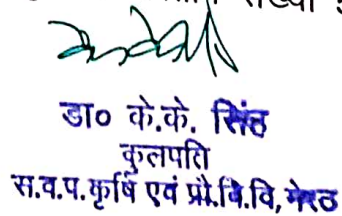 डा० के.के. सिंह
कुलपति
स.व.प.कृषि एवं प्रौ.वि.वि, मेरठ